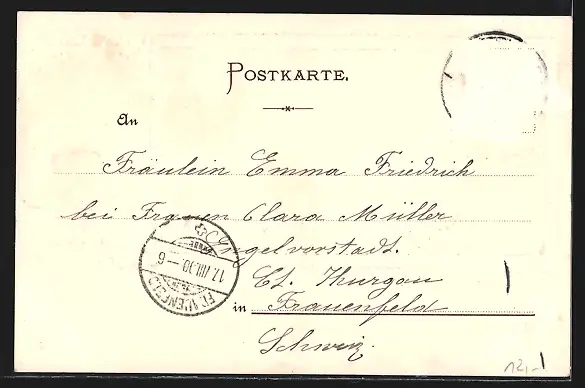 POSTKARTE.
An
Fräulein Emma Friedrich
bei Frauen Clara Müller
Engelvorstadt.
Ct. Thurgau
in Frauenfeld
Schweiz.
17.VIII.00 – 6
FRAUENFELD
12,-